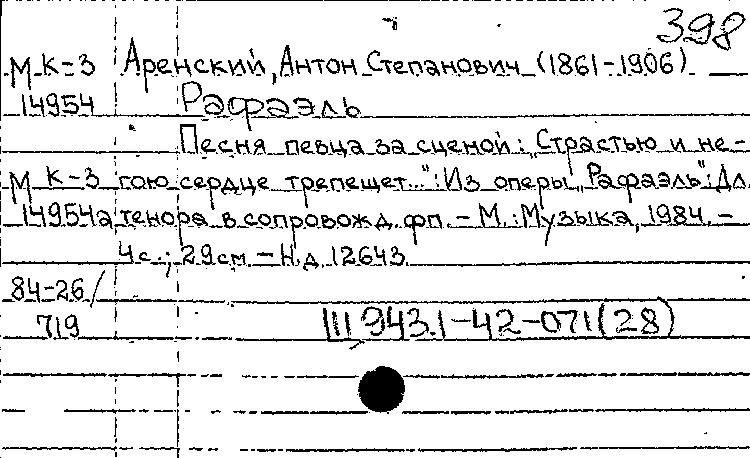 398
М К-3 Аренский, Антон Степанович (1861-1906)
14954 Рафаэль
Песня певца за сценой: „Страстью и не-
М К-3 гою сердце трепещет...": Из оперы „Рафаэль": Дл.
14954а тенора в сопровожд. фп. - М.: Музыка, 1984. -
4с.; 29см. - Н.д. 12643
84-26/
719 Ш 943.1-42-071(28)